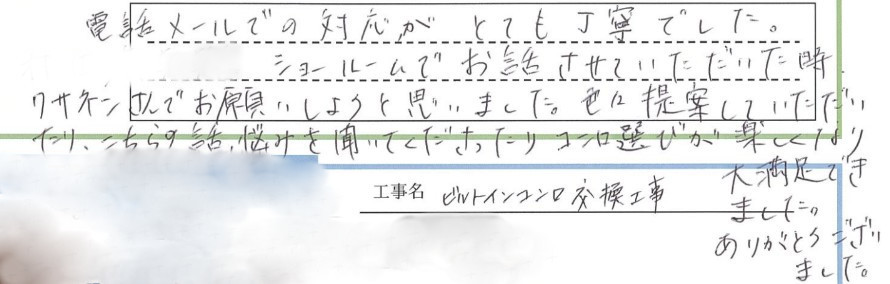 電話メールでの対応がとても丁寧でした。
ショールームでお話させていただいた時、
ワサケンさんでお願いしようと思いました。色々提案していただい
たり、こちらの話、悩みを聞いてくださったりコンロ選びが楽しくなり
大満足でき
ました。
ありがとうござい
ました。
工事名 ビルトインコンロ交換工事